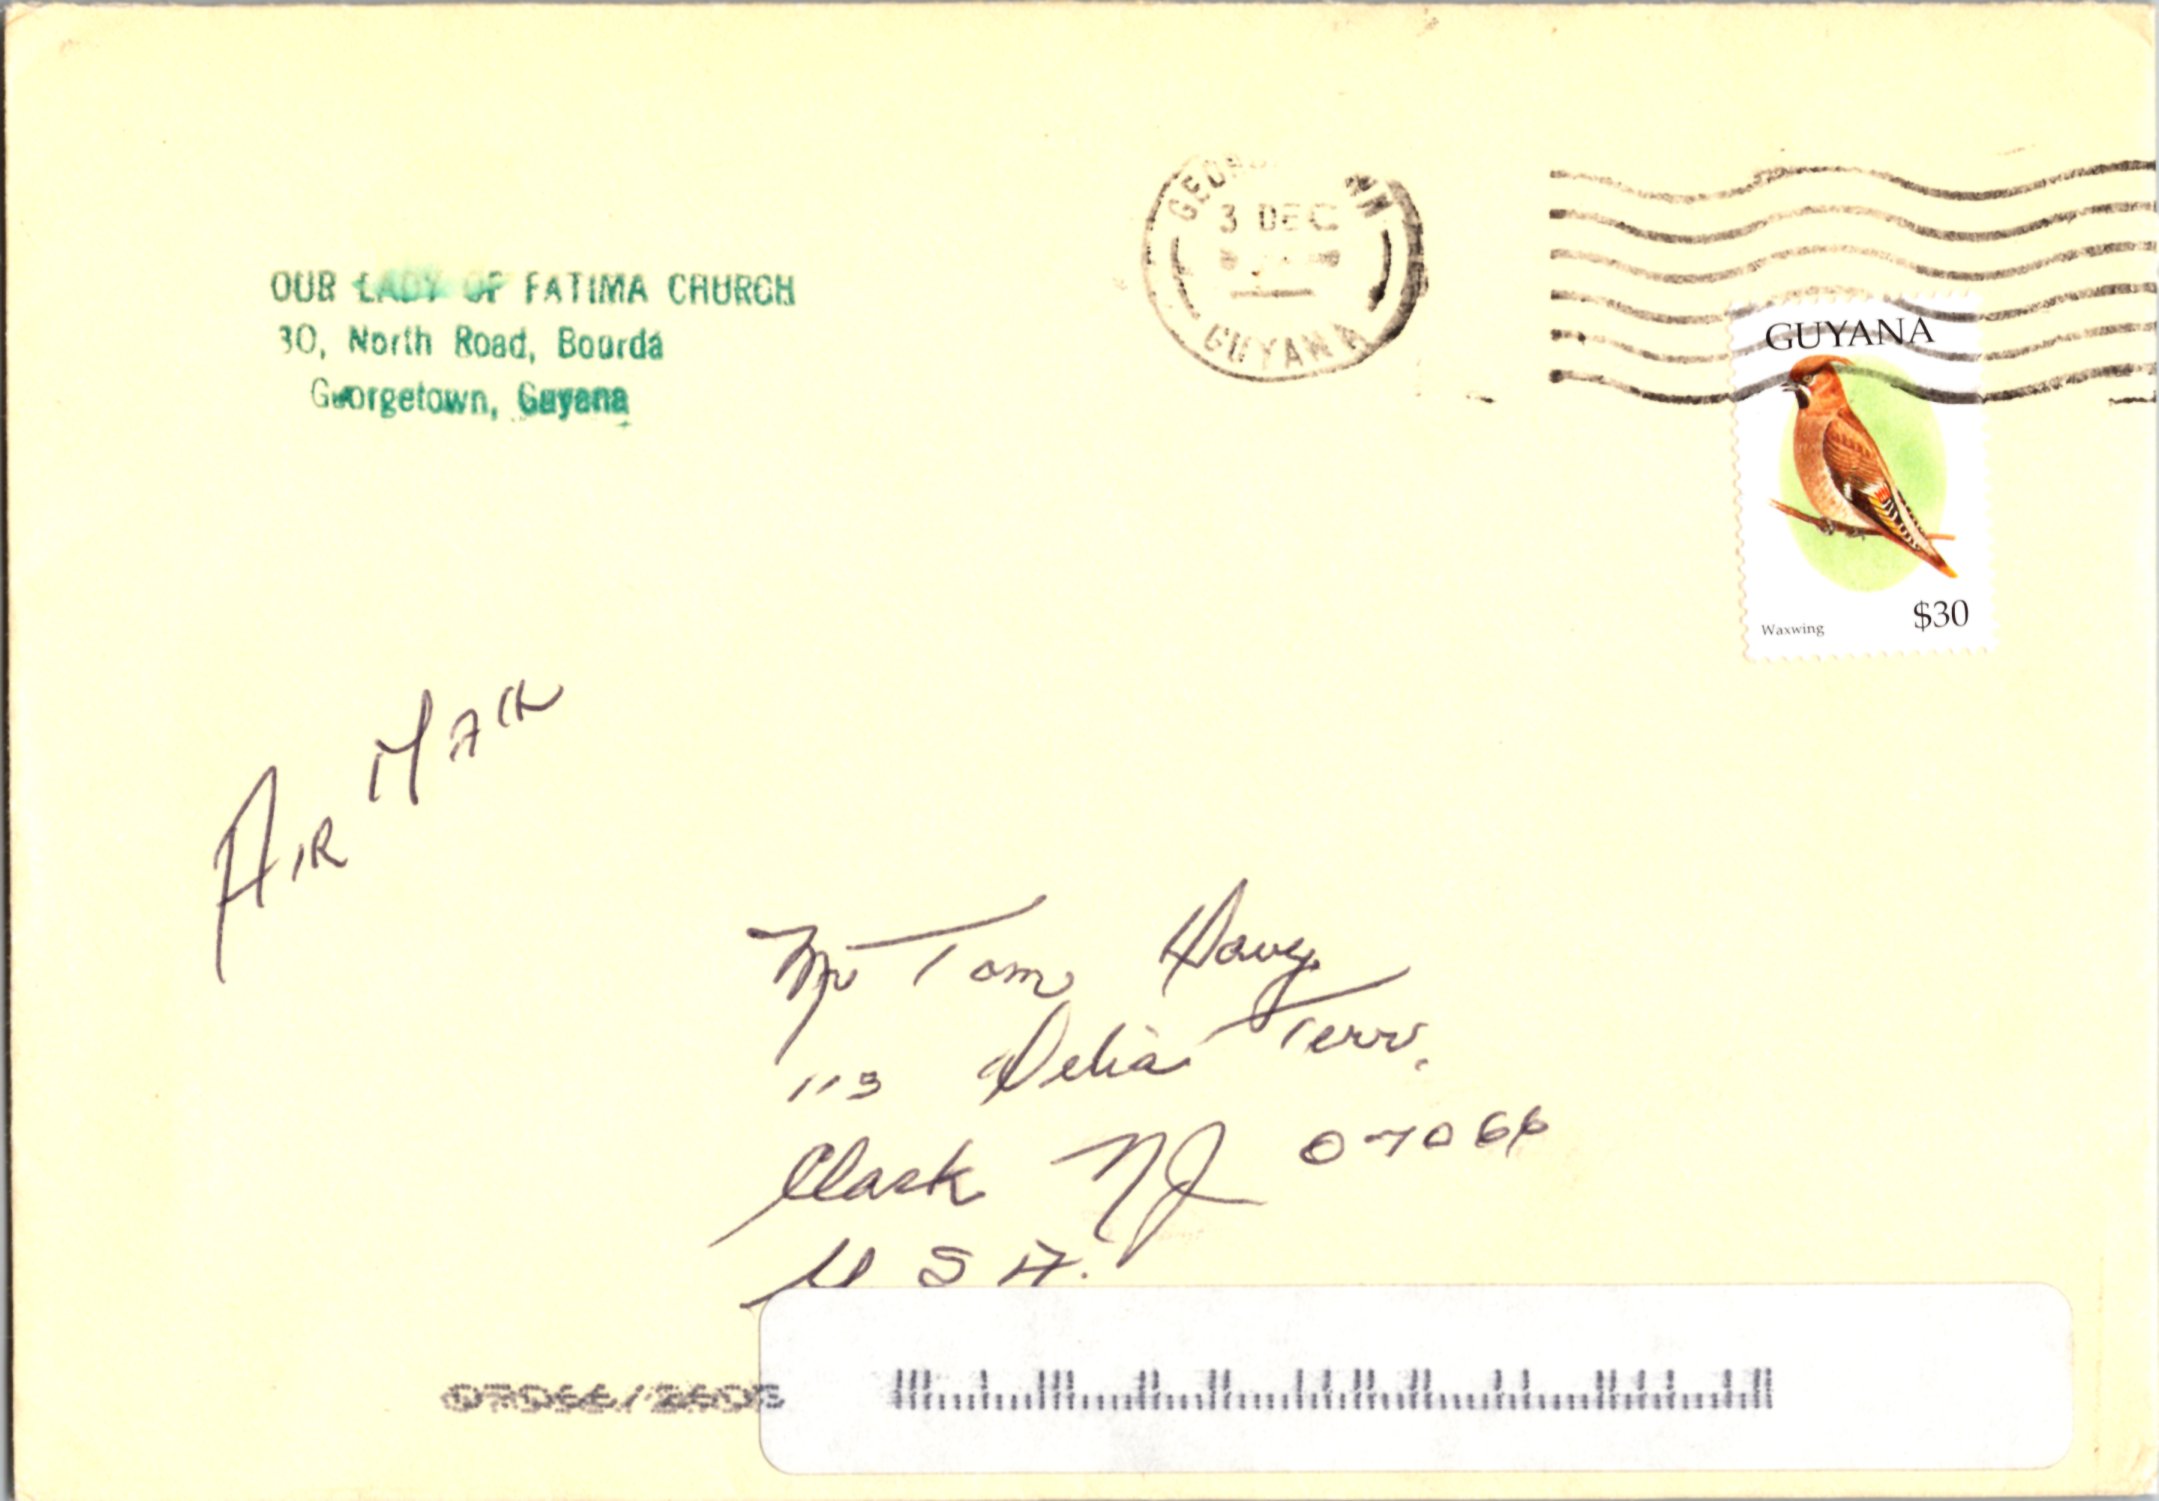 OUR LADY OF FATIMA CHURCH
30, North Road, Bourda
Georgetown, Guyana
3 DEC
GUYANA
GUYANA
Waxwing
$30
AIR MAIL
Mr Tom Davy
113 Delia Terr.
Clark NJ 07066
USA.
07066/2603